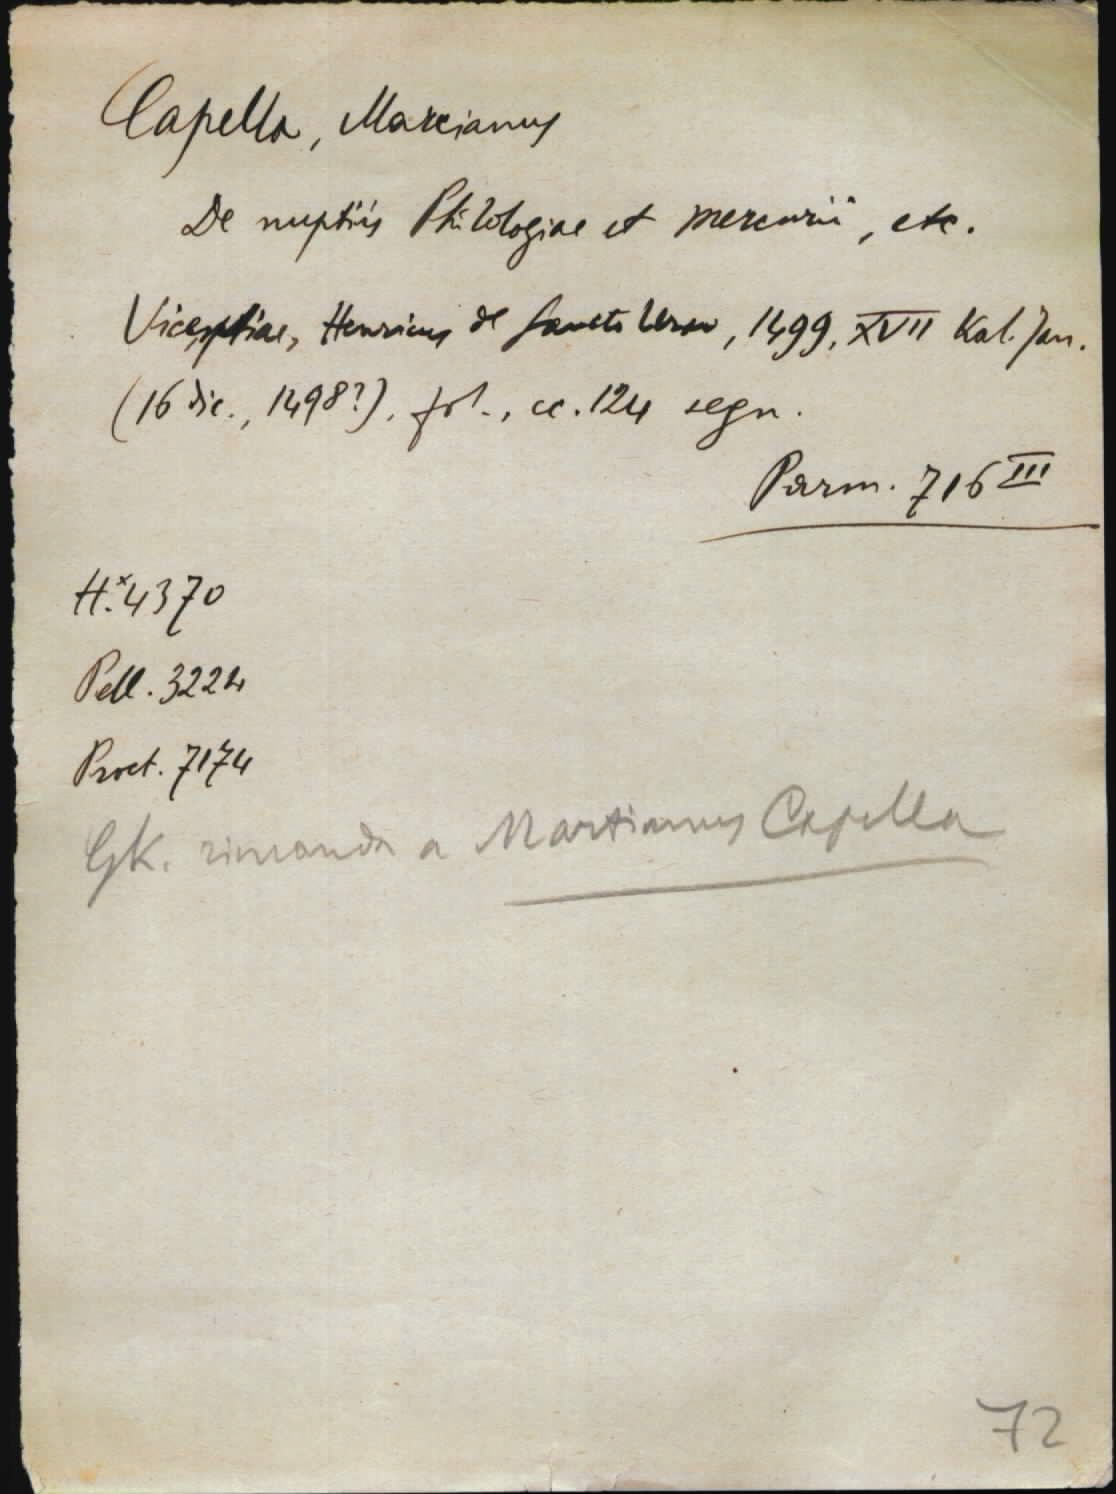 Capella, Marcianus
De nuptiis Philologiae et Mercurii, etc.
Vicentiae, Henricus de Sancto Urso, 1499, XVII Kal. Jan.
(16 dic., 1498?). fol., cc. 124 segn.
Parm. 716 III
H.* 4370
Pell. 3224
Proct. 7174
GK. rimanda a Martianus Capella
72